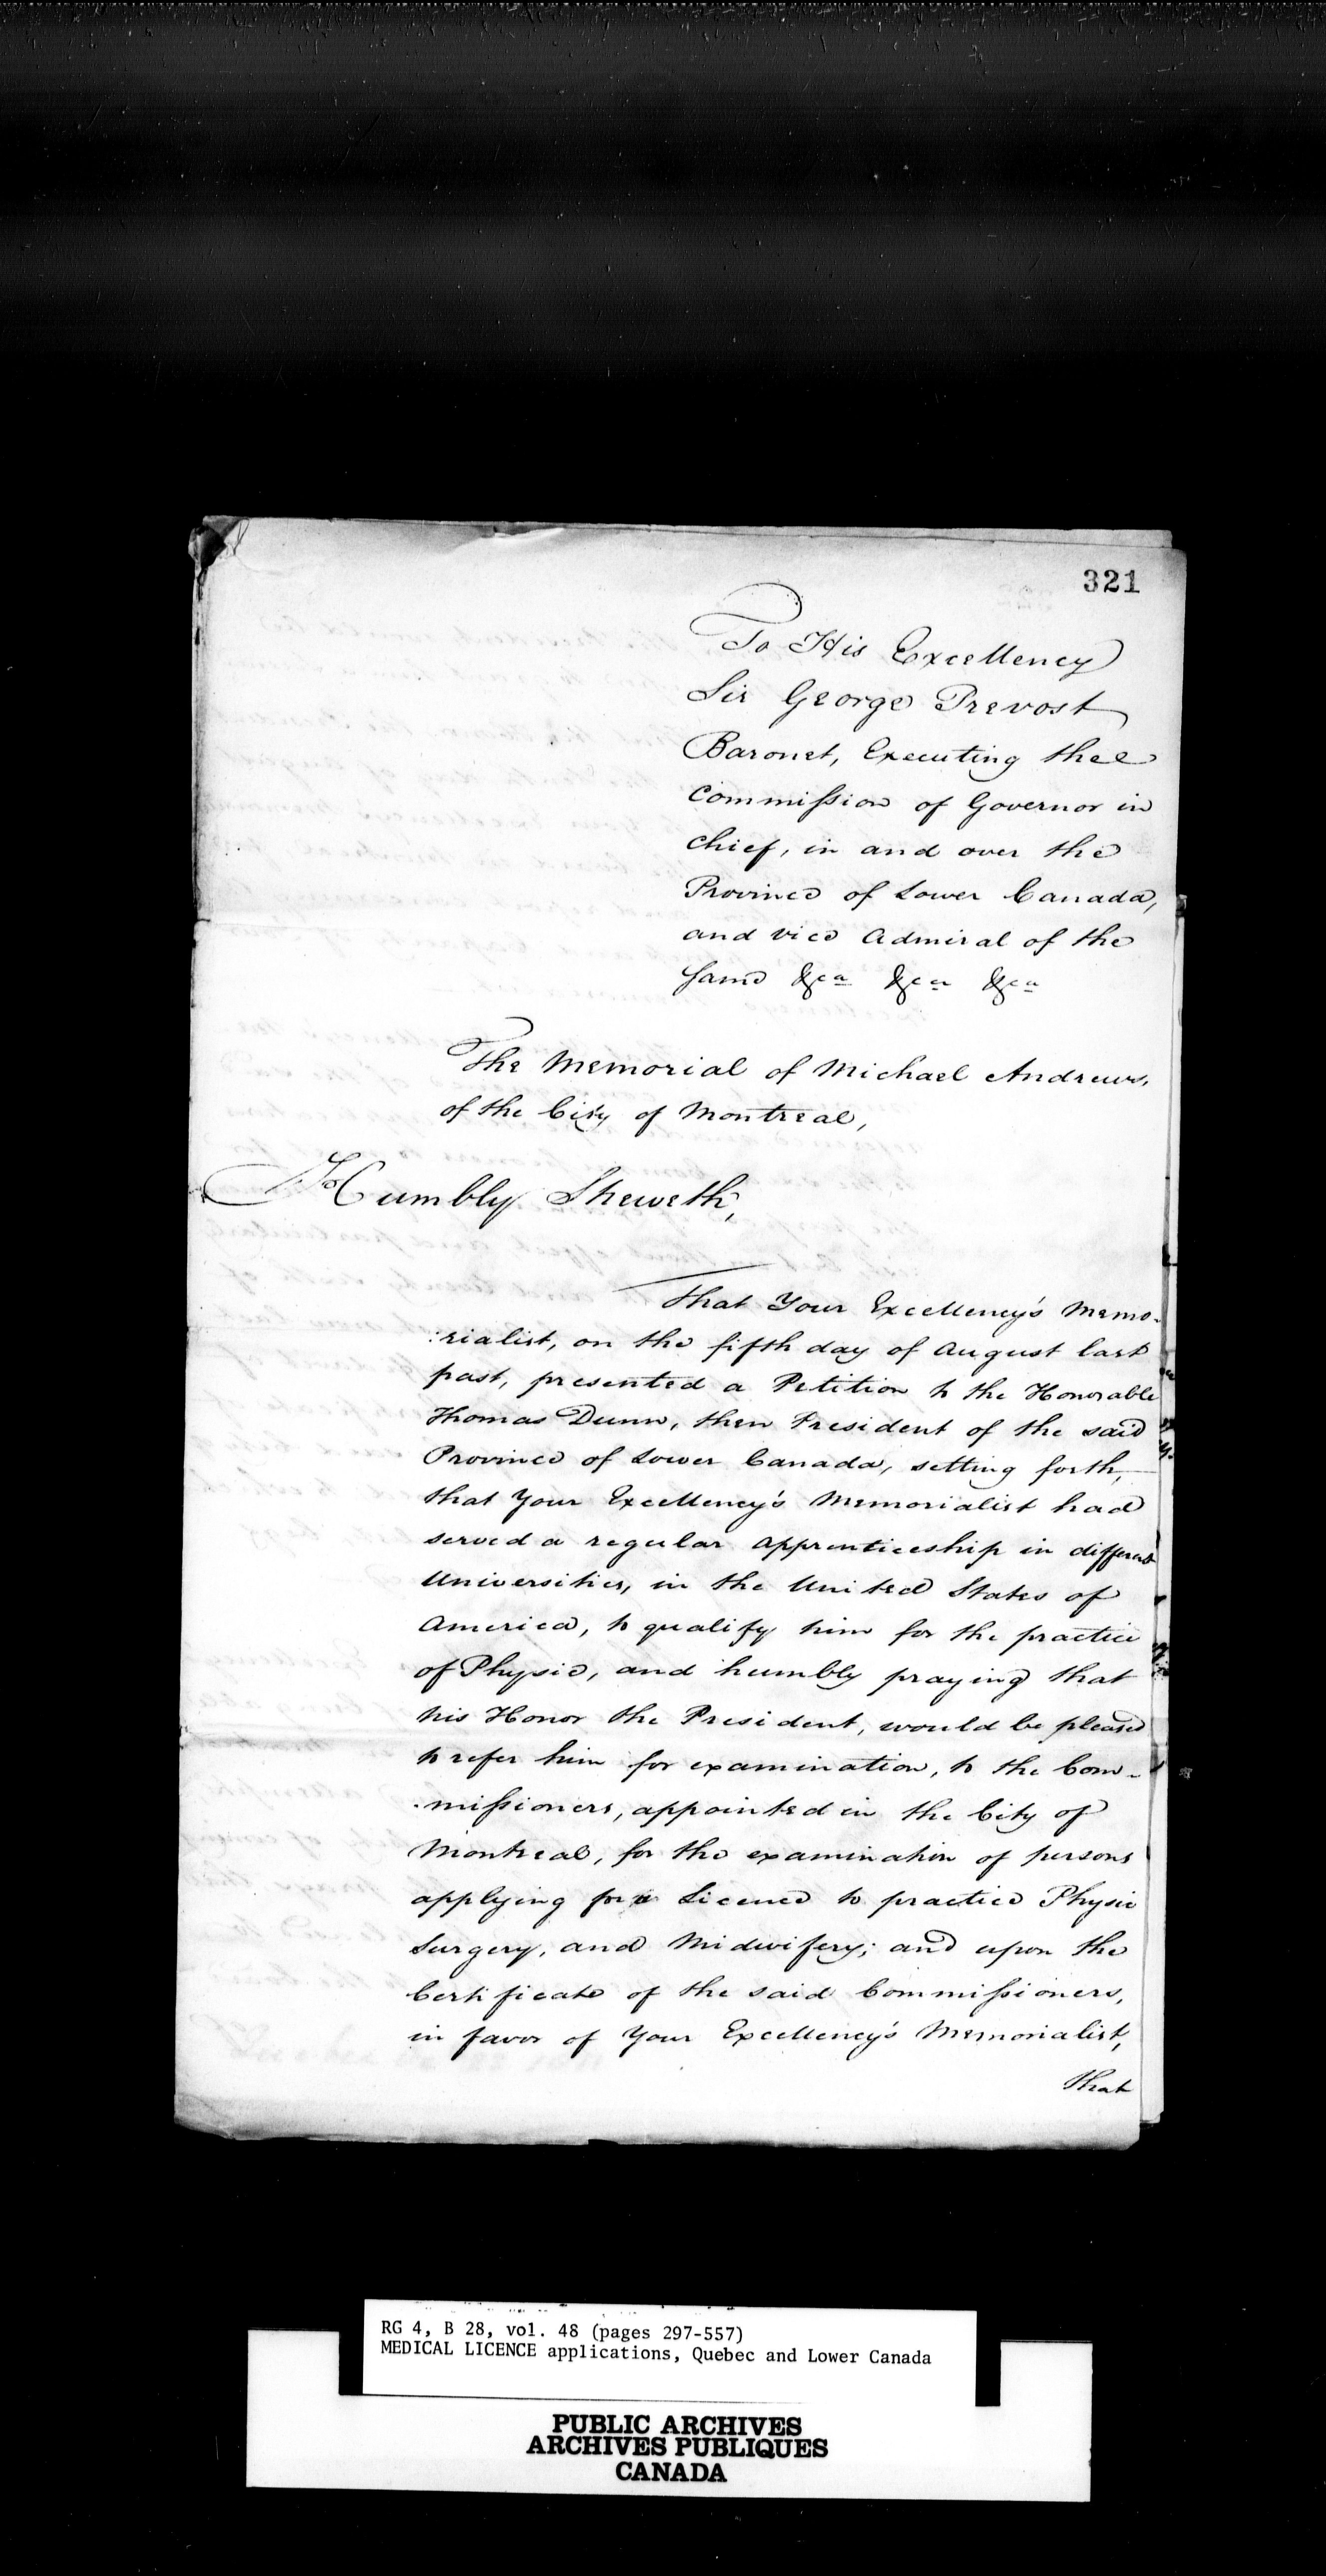 321
To His Excellency
Sir George Prevost
Baronet, Executing the
Commission of Governor in
chief, in and over the
Province of Lower Canada,
and vice Admiral of the
same &ca &ca &ca
The Memorial of Michael Andrews,
of the City of Montreal,
Humbly Sheweth,
That Your Excellency's Memo-
:rialist, on the fifth day of August last
past, presented a Petition to the Honorable
Thomas Dunn, then President of the said
Province of Lower Canada, setting forth,
that Your Excellency's Memorialist had
served a regular apprenticeship in different
Universities, in the United States of
America, to qualify him for the practice
of Physic, and humbly praying that
his Honor the President, would be pleased
to refer him for examination, to the Com-
-missioners, appointed in the City of
Montreal, for the examination of persons
applying for a Licence to practice Physic
Surgery, and Midwifery; and upon the
Certificate of the said Commissioners,
in favor of Your Excellency's Memorialist,
that
RG 4, B 28, vol. 48 (pages 297-557)
MEDICAL LICENCE applications, Quebec and Lower Canada
PUBLIC ARCHIVES
ARCHIVES PUBLIQUES
CANADA